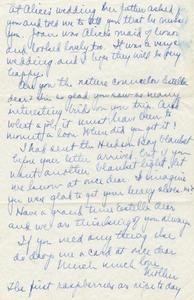 at Alice's wedding her father asked for you
and told me to tell you that he missed
you. Joan was Alice's maid of honor
and looked lovely too. It was a very
wedding and I hope they will be very
happy.
Are you the nature counselor Estelle
dear? I'm so glad you saw so many
interesting birds on your trip. And
what a job it must have been to
it look. When did you get it?
I had sent the Hudson Bay blanket
before your letter arrived, but if you
want another blanket light, let
us know at once dear. I imagine
you was glad to get your
Have a grand time Estelle dear
and we are thinking of you always
If you need any thing else
do drop me a card at once dear
Much much love
Mother
The first raspberries are nice to day